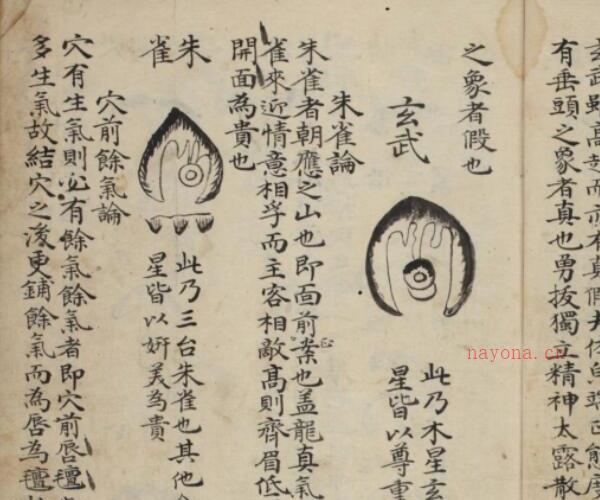 玄武雖高起而亦有真假夫
有垂頭之象者真也勇拔獨立精神太露散
之象者假也
玄武
此乃木星玄
星皆以尊重
朱雀論
朱雀者朝應之山也即面前案也盖龍真氣
正
雀來近情意相孚而主客相敵高則齊眉低
開面為貴也
朱
雀
此乃三台朱雀也其他
星皆以妍美為貴
穴前餘氣論
穴有生氣則必有餘氣餘氣者即穴前唇氊
多生氣故結穴之後更鋪餘氣而為唇為氊
nayona.cn